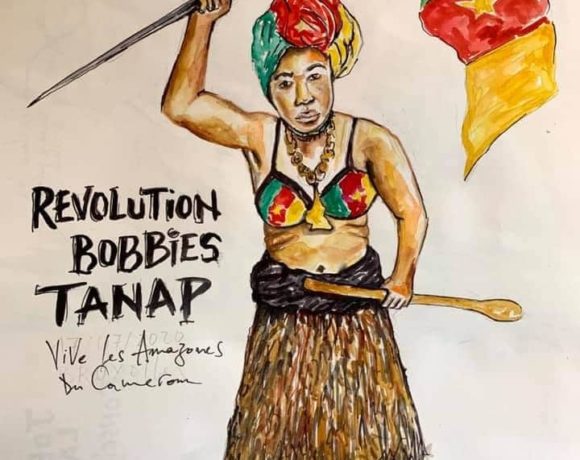 REVOLUTION
BOBBIES
TANAP
Vive les Amazones
Du Cameroun